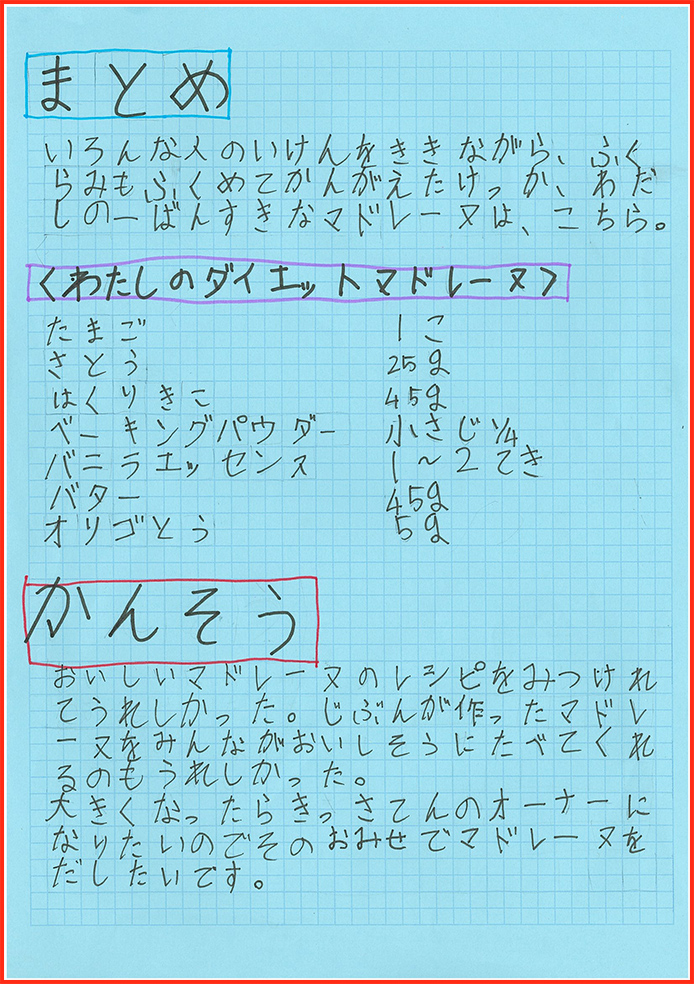 まとめ
いろんな人のいけんをききながら、ふく
らみもふくめてかんがえたけっか、わた
しの一ばんすきなマドレーヌは、こちら。
〈わたしのダイエットマドレーヌ〉
たまご 1こ
さとう 25g
はくりきこ 45g
ベーキングパウダー 小さじ1/4
バニラエッセンス 1〜2てき
バター 45g
オリゴとう 5g
かんそう
おいしいマドレーヌのレシピをみつけれ
てうれしかった。じぶんが作ったマドレ
ーヌをみんながおいしそうにたべてくれ
るのもうれしかった。
大きくなったらきっさてんのオーナーに
なりたいのでそのおみせでマドレーヌを
だしたいです。